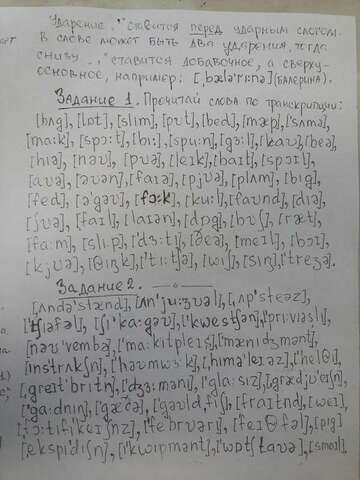 Ударение "'" ставится перед ударным слогом.
в слове может быть два ударения, тогда
снизу "," ставится добавочное, а сверху -
основное, например: [ˌbælə'ri:nə] (балерина).
Задание 1. Прочитай слова по транскрипции:
[bʌg], [lɒt], [slim], [pʊt], [bed], [mæp], ['sʌmə]
[ma:k], [spɔ:t], [bi:], [spu:n], [gɜ:l], [kaʊ], [beə]
[hiə], [nəʊ], [pʊə], [leɪk], [baɪt], [spɔɪl],
[aʊə], [əʊən], [faɪə], [pjʊə], [plʌm], [bɪg],
[fed], [ə'gəʊ], [fɔ:k], [ku:l], [faʊnd], [dɪə],
[ʃʊə], [faɪl], [laɪən], [dɒg], [bʊʃ], [ræt],
[fa:m], [sli:p], ['dɜ:tɪ], [ðeə], [meɪl], [bɔɪ],
[kjʊə], [θɪŋk], ['ti:tʃə], [wɪʃ], [sɪŋ], ['treʒə].
Задание 2.
[ˌʌndə'stænd], [ʌn'ju:ʒʊəl], [ˌʌp'steəz]
['kwestʃən], ['pri:viəsli],
[nəʊ'vembə], ['ma:kitpleɪs], [mænidʒmənt],
[instrʌkʃn], ['həʊmwɜ:k], [ˌhimə'leɪəz], ['helθi],
[ˌgreɪt'britn], ['dʒɜ:məni], ['gla:sɪz], [ˌgrædjʊ'eɪʃn],
['ga:dnɪŋ], ['gəʊldˌfiʃ], [weɪ],
[ˌfɔ:tifɪ'keɪʃnz], ['febrʊəri], ['feɪθfəl], [pɪg]
[ekspi'diʃn], ['kwipmənt], ['wɒtʃtaʊə], [smɔ:l],